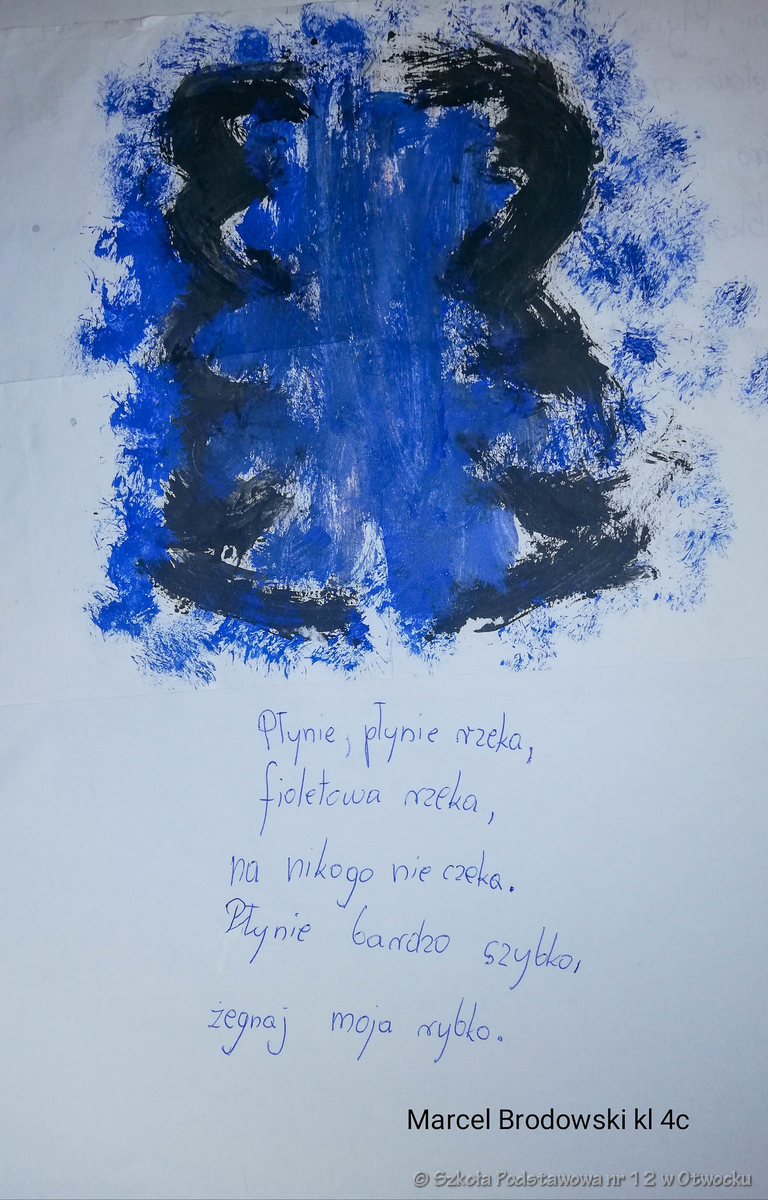 Płynie, płynie rzeka,
fioletowa rzeka,
na nikogo nie czeka.
Płynie bardzo szybko,
żegnaj moja rybko.
Marcel Brodowski kl 4c
© Szkoła Podstawowa nr 12 w Otwocku